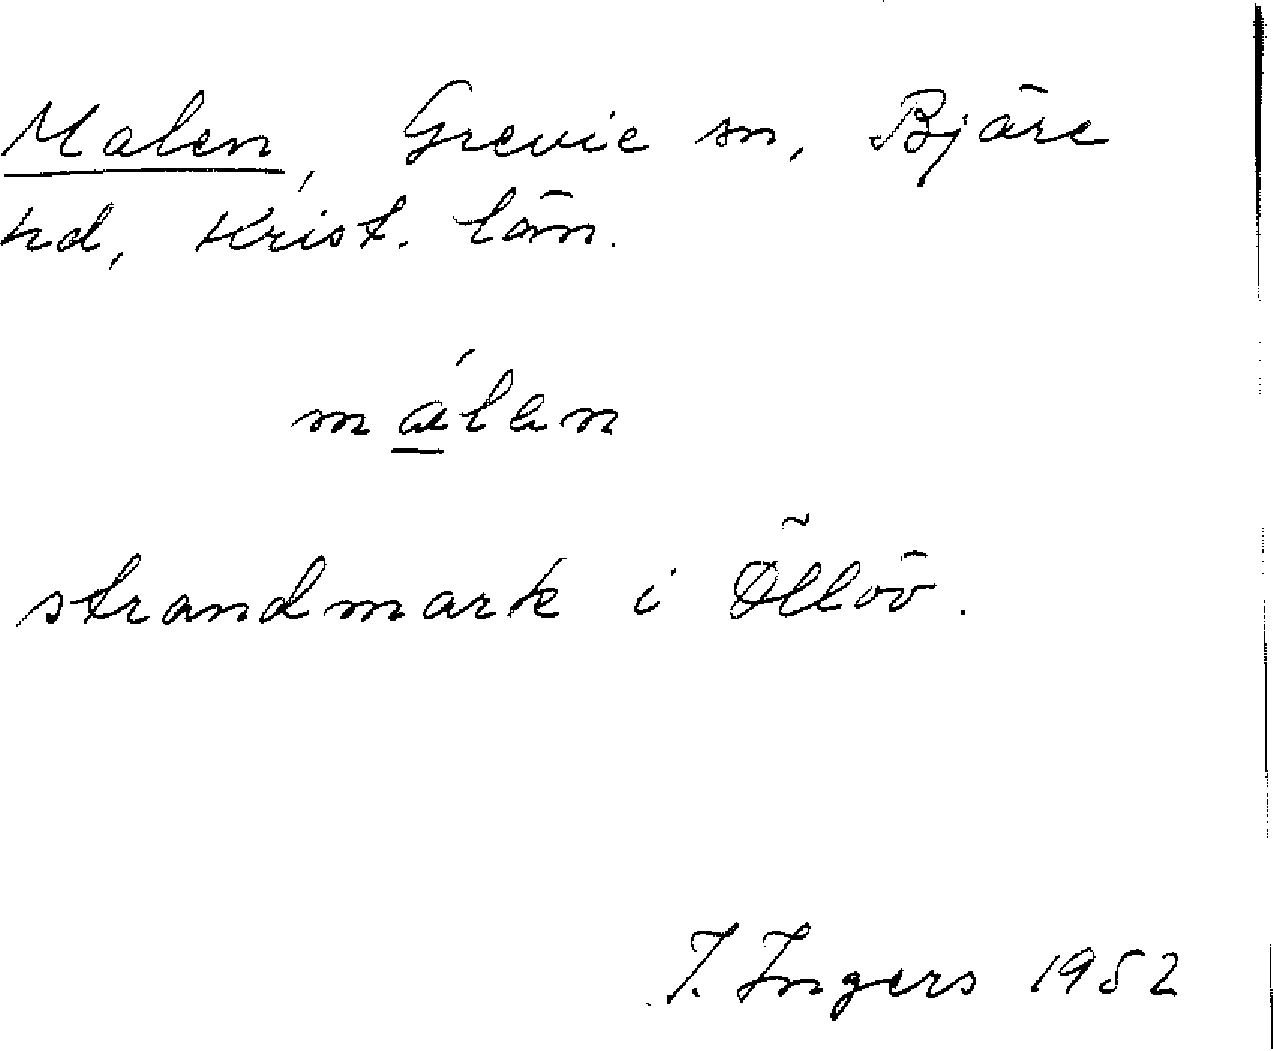 Malen, Grevie sn, Bjäre
hd, Krist. län.
málen
strandmark i Öllöv.
I. Ingers 1952